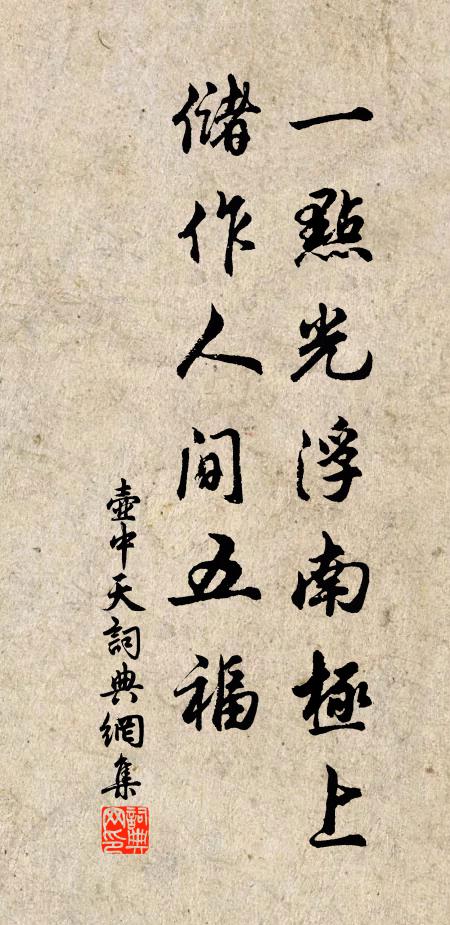 一點光浮南極上
儲作人間五福
壺中天詞典網集
詞典网印